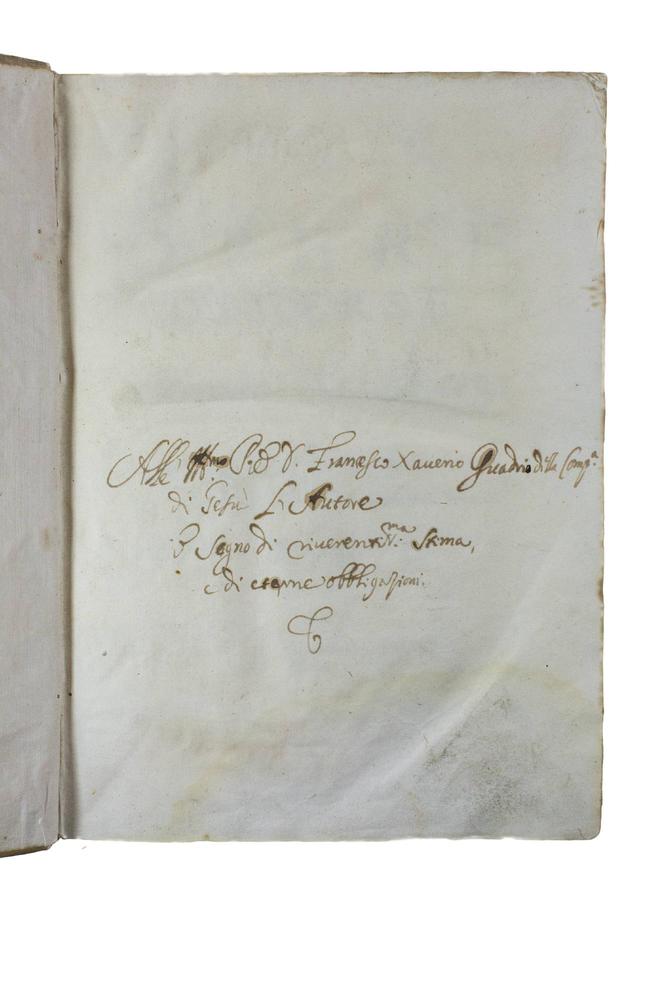 Alle Illmo P. D. V. Francesco Xaverio Quadrio della Compa.
di Gesù L'Autore
P Segno di riverentma. Stima,
e di eterne obbligazioni.